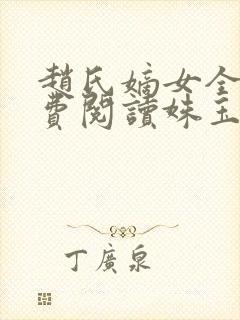 趙氏嫡女全
費閱讀妹主
丁廣泉